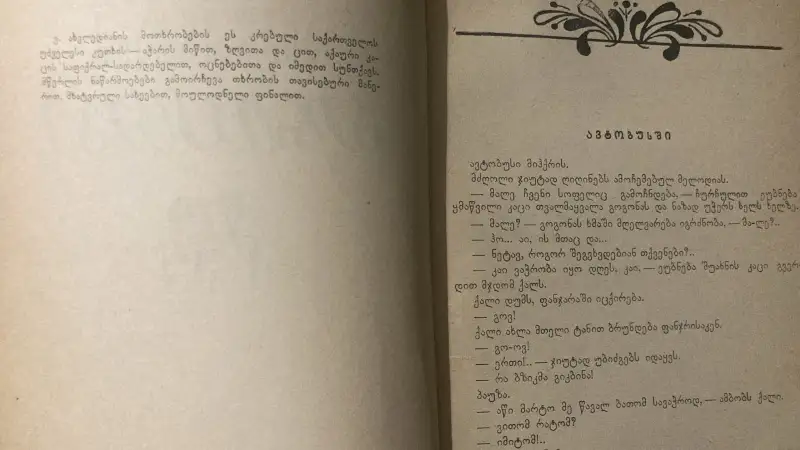 ვ. ახვლედიანის მოთხრობების ეს კრებული საქართველოს
უძველესი კუთხის — აჭარის მიწით, ზღვითა და ცით, აქაური კა-
ცის საფიქრალ-სადარდებელით, ოცნებებითა და იმედით სუნთქავს.
მწერლის ნაწარმოებები გამოირჩევა თხრობის თავისებური მანე-
რით, მხატვრული სახეებით, მოულოდნელი ფინალით.
ავტობუსში
ავტობუსი მიჰქრის.
მძღოლი ჯიუტად ღიღინებს ამოჩემებულ მელოდიას.
— მალე ჩვენი სოფელიც გამოჩნდება, — ჩურჩულით ეუბნება
ყმაწვილი კაცი თვალმაყვალა გოგონას და ნაზად უჭერს ხელს ხელზე.
— მალე? — გოგონას ხმაში მღელვარება იგრძნობა, — მა-ლე?..
— ჰო... აი, ის მთაც და...
— ნეტავ, როგორ შეგვხვდებიან თქვენები?..
— კაი ვაჭრობა იყო დღეს, კაი, — ეუბნება შუახნის კაცი გვერ-
დით მჯდომ ქალს.
ქალი დუმს, ფანჯარაში იცქირება.
— გოვ!
ქალი ახლა მთელი ტანით ბრუნდება ფანჯრისაკენ.
— გო-ოვ!
— ერთი!.. — ჯიუტად უბიძგებს იდაყვს.
— რა ბზიკმა გიკბინა!
პაუზა.
— აწი მარტო მე წავალ ბათომ სავაჭროდ, — ამბობს ქალი.
— ვითომ რატომ?
— იმიტომ!..